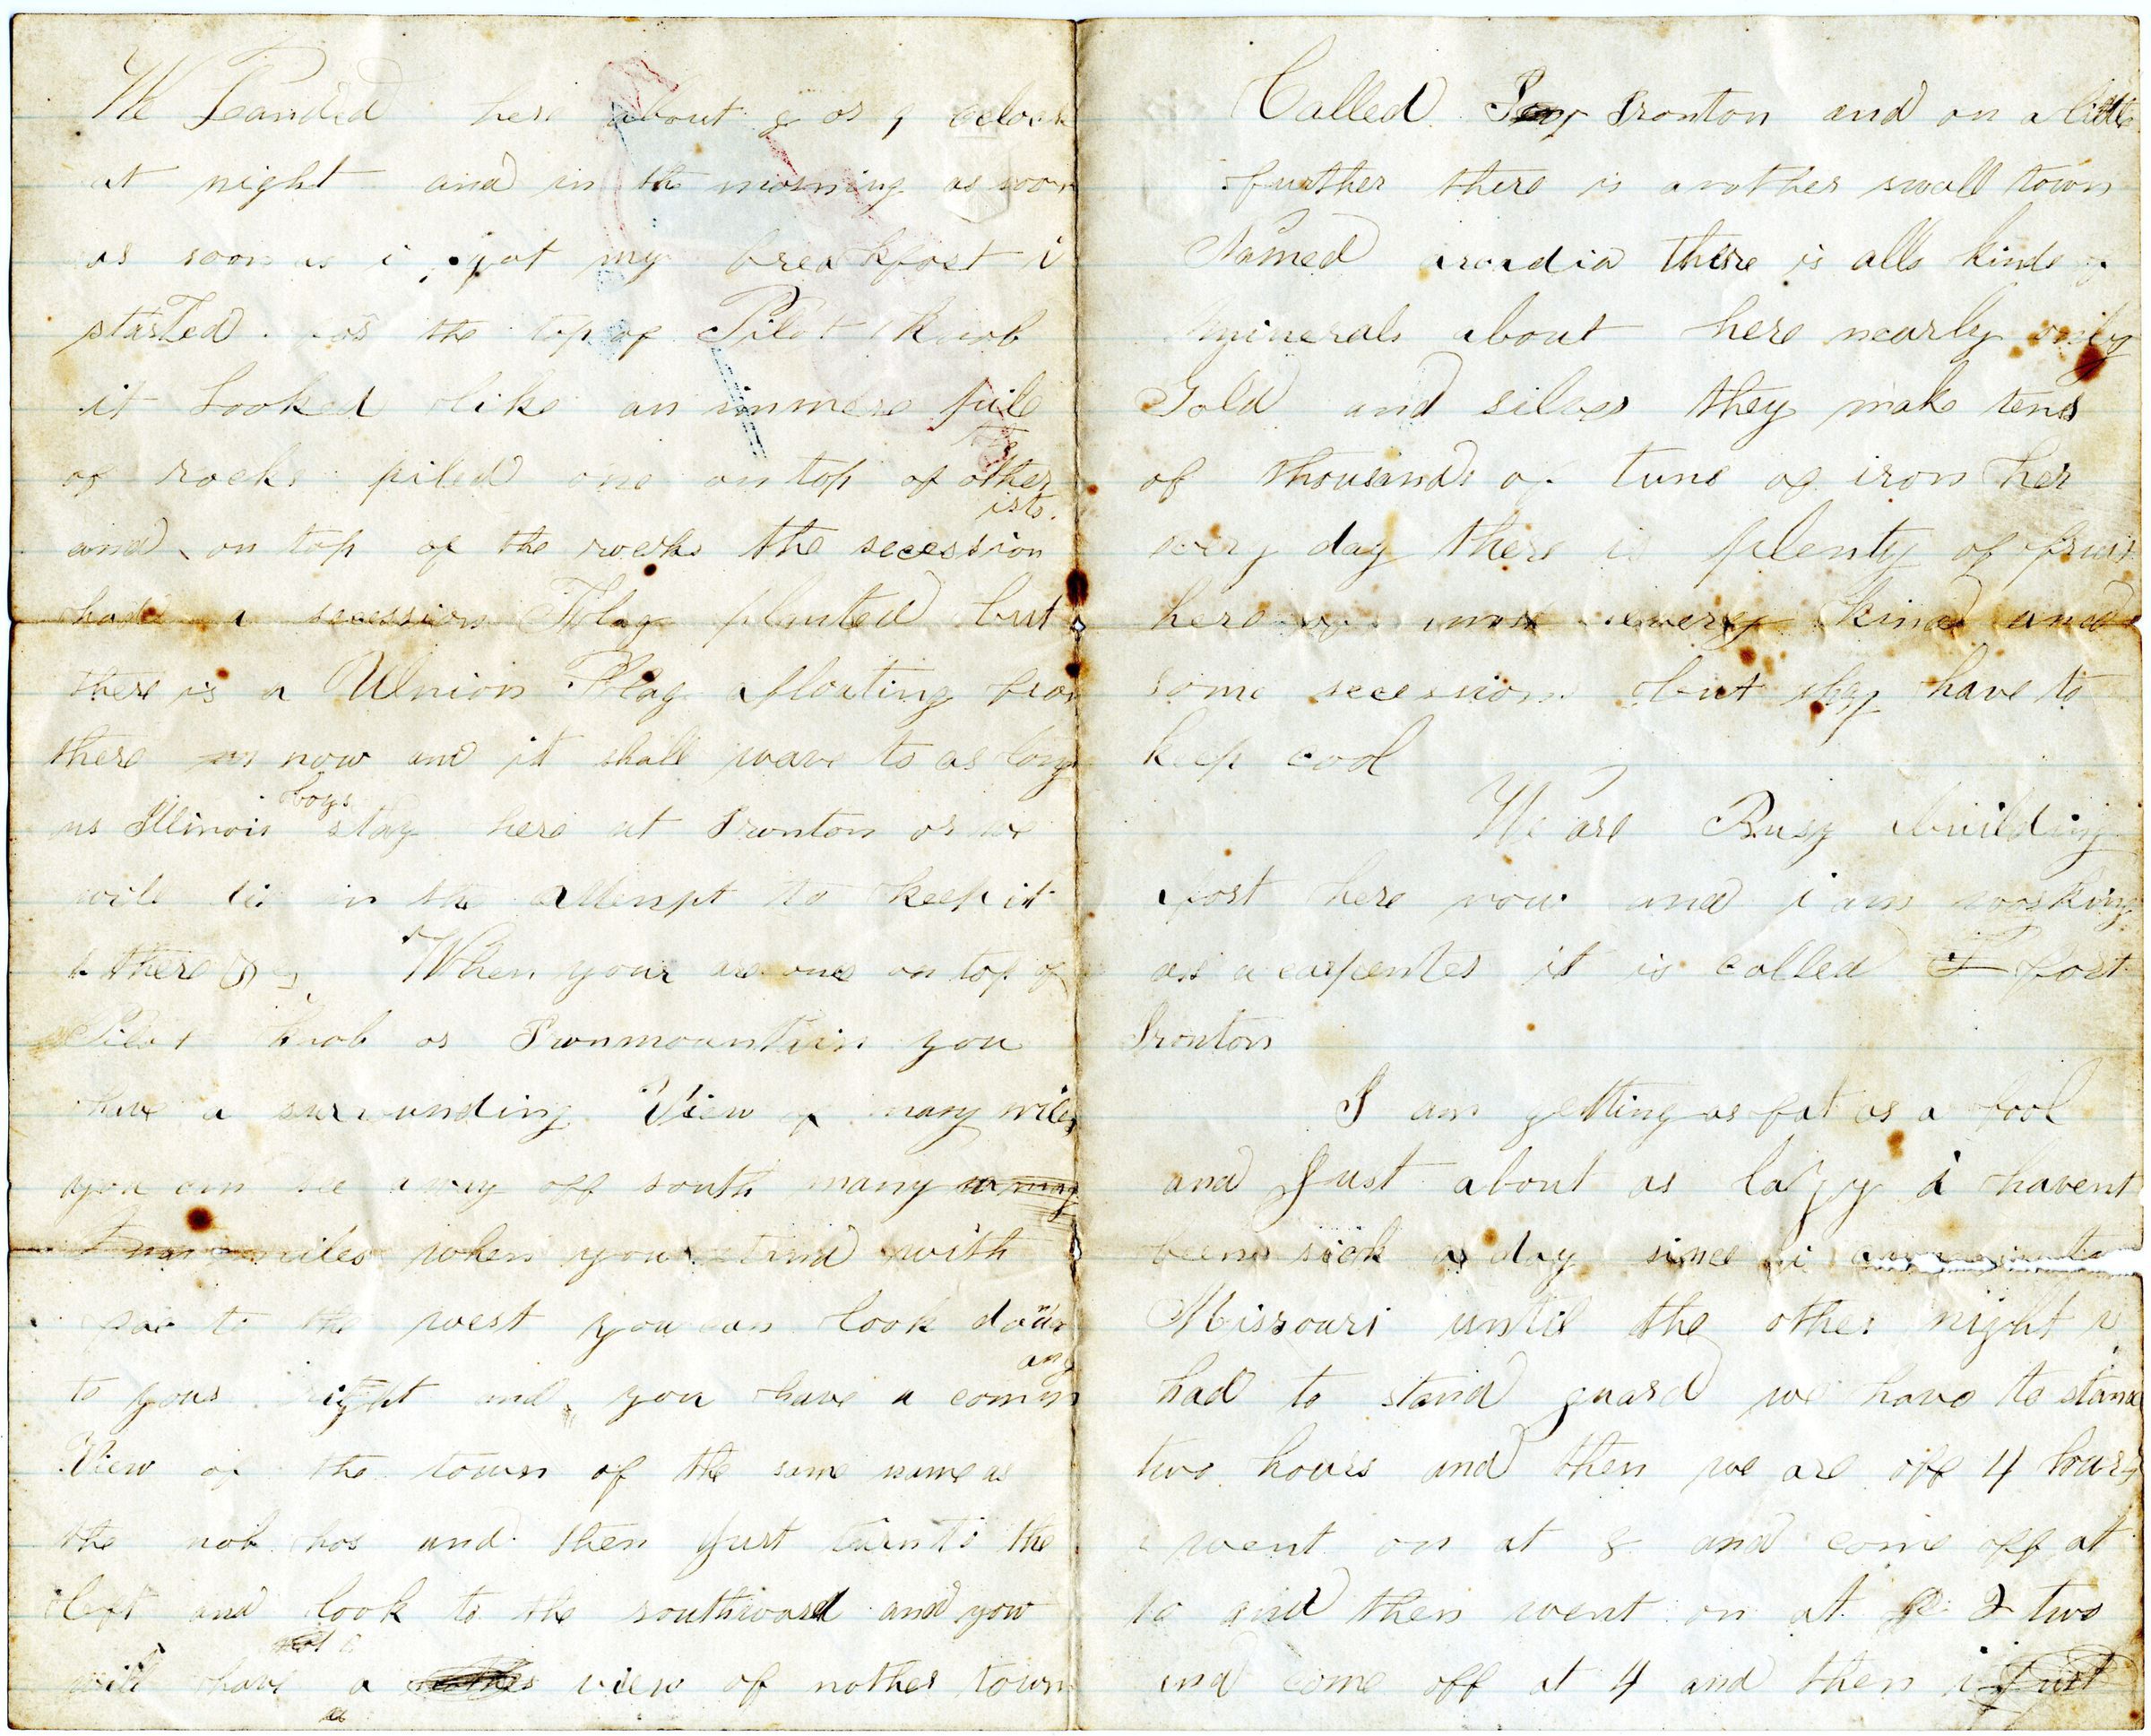 We Landed here about 8 or 9 oclock
at night and in the morning as soon
as soon as i got my breakfost i
starTed for the top of Pilot Knob
it Looked like an immens pile
of rocks piled one on top of the other
and on top of the rocks the secessionists.
had a secession Flag planted but
there is a Union Flag afloating from
there now and it shall wave to as long
as Illinois boys stay here at Ironton or we
will die in the attempt to keep it
there When your are one on top of
Pilot Knob or Ironmountain you
have a surrounding View of many miles
you can see away off south many
miles when you stand with
face to the west you can look down
to your right and you have a comm ang
View of the town of the same name as
the nob has and then Just turn to the
left and look to the southward and you
will have a view of nother town
Called Ironton and on a little
further there is another small town
Named arcadia there is alls kinds of
minerals about here nearly only
Gold and silver they make tens
of thousands of tuns of iron her
every day there is plenty of fruit
here of every kind and
some secession but they have to
keep cool
We are Busy building
fort here now and i am working
as a carpenter it is called fort
Ironton
I am getting as fat as a fool
and Just about as lazy i havent
been sick a day since i came into
Missouri until the other night i
had to stand guard we have to stand
two hours and then we are off 4 hours
i went on at 8 and come off at
10 and then went on at 2 two
and come off at 4 and then i Just